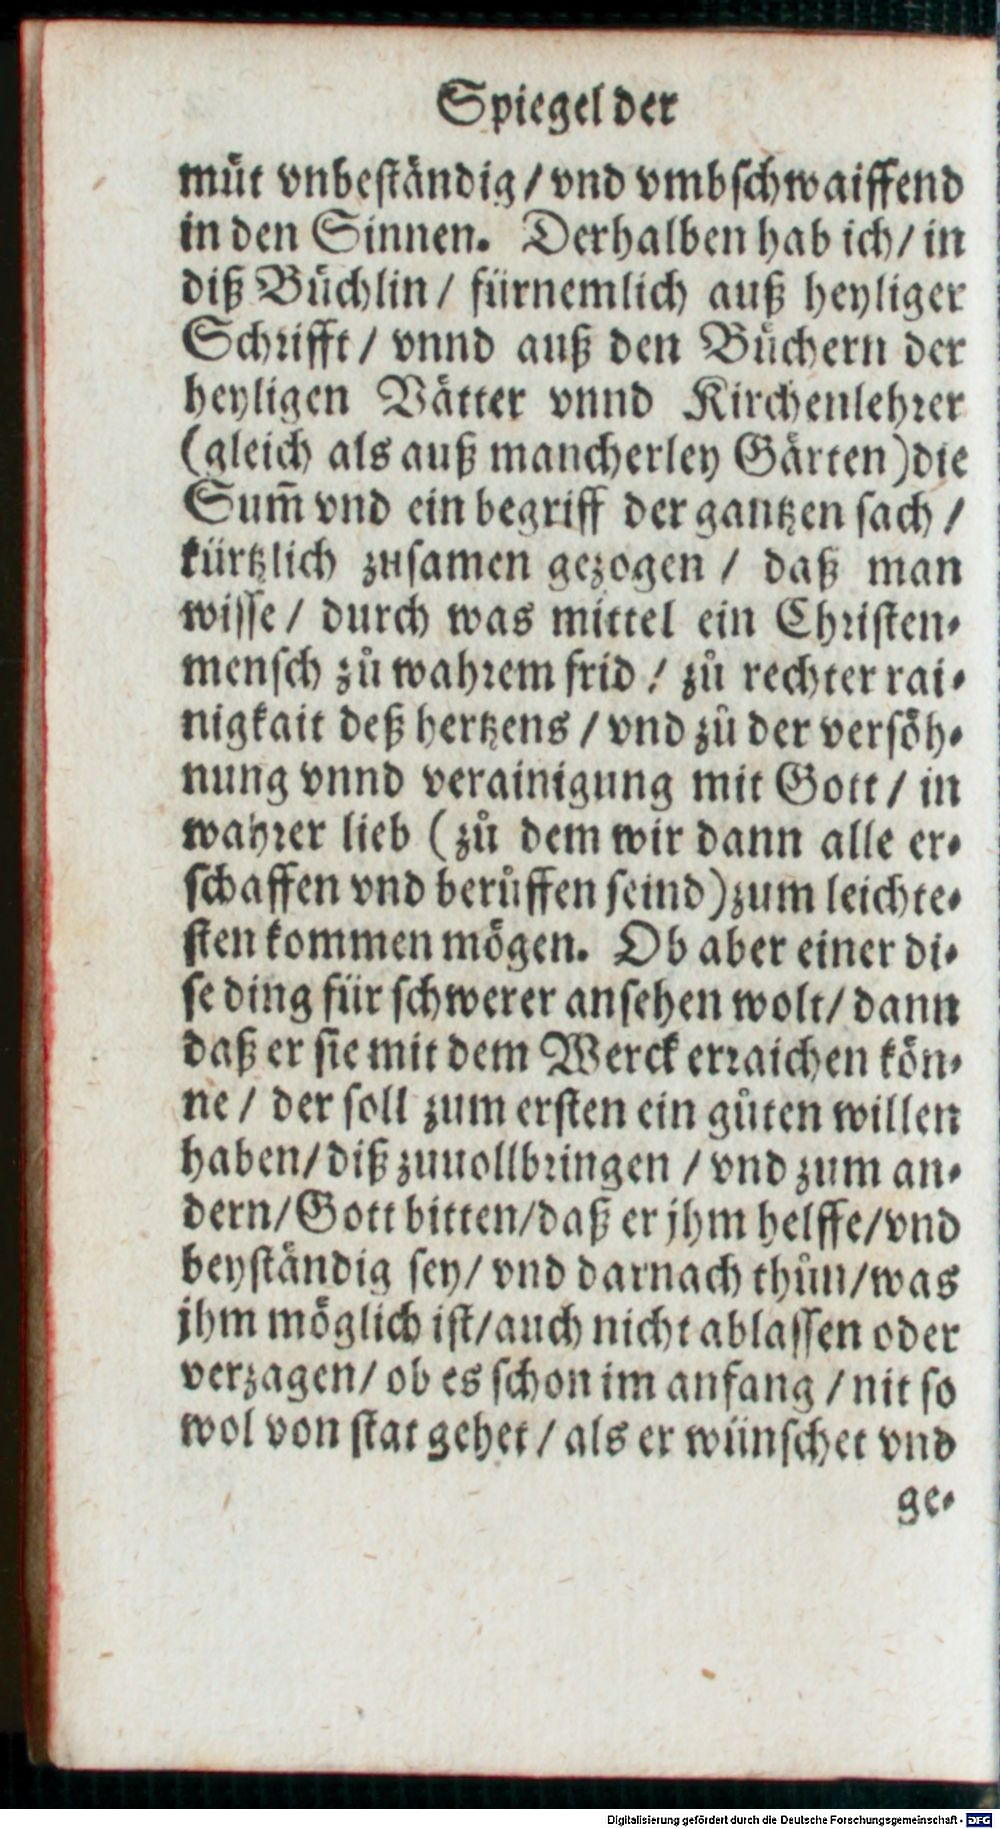 Spiegel der
muͤt vnbeſtaͤndig / vnd vmbſchwaiffend
in den Sinnen. Derhalben hab ich / in
diß Buͤchlin / fürnemlich auß heyliger
Schꝛifft / vnnd auß den Buͤchern der
heyligen Vaͤtter vnnd Kirchenlehꝛer
(gleich als auß mancherley Gaͤrten) die
Sum̃ vnd ein begriff der gantzen ſach /
kürtzlich zuſamen gezogen / daß man
wiſſe / durch was mittel ein Chꝛiſten⸗
menſch zuͦ wahꝛem frid / zuͦ rechter rai⸗
nigkait deß hertzens / vnd zuͦ der verſoͤh⸗
nung vnnd verainigung mit Gott / in
wahꝛer lieb (zuͦ dem wir dann alle er⸗
ſchaffen vnd beruͤffen ſeind) zum leichte⸗
ſten kommen moͤgen. Ob aber einer di⸗
ſe ding für ſchwerer anſehen wolt / dann
daß er ſie mit dem Werck erꝛaichen koͤn⸗
ne / der ſoll zum erſten ein guͦten willen
haben / diß zuuollbꝛingen / vnd zum an⸗
dern / Gott bitten / daß er jhm helffe / vnd
beyſtaͤndig ſey / vnd darnach thuͦn / was
jhm moͤglich iſt / auch nicht ablaſſen oder
verzagen / ob es ſchon im anfang / nit ſo
wol von ſtat gehet / als er wünſchet vnd
ge⸗
Digitalisierung gefördert durch die Deutsche Forschungsgemeinschaft - DFG